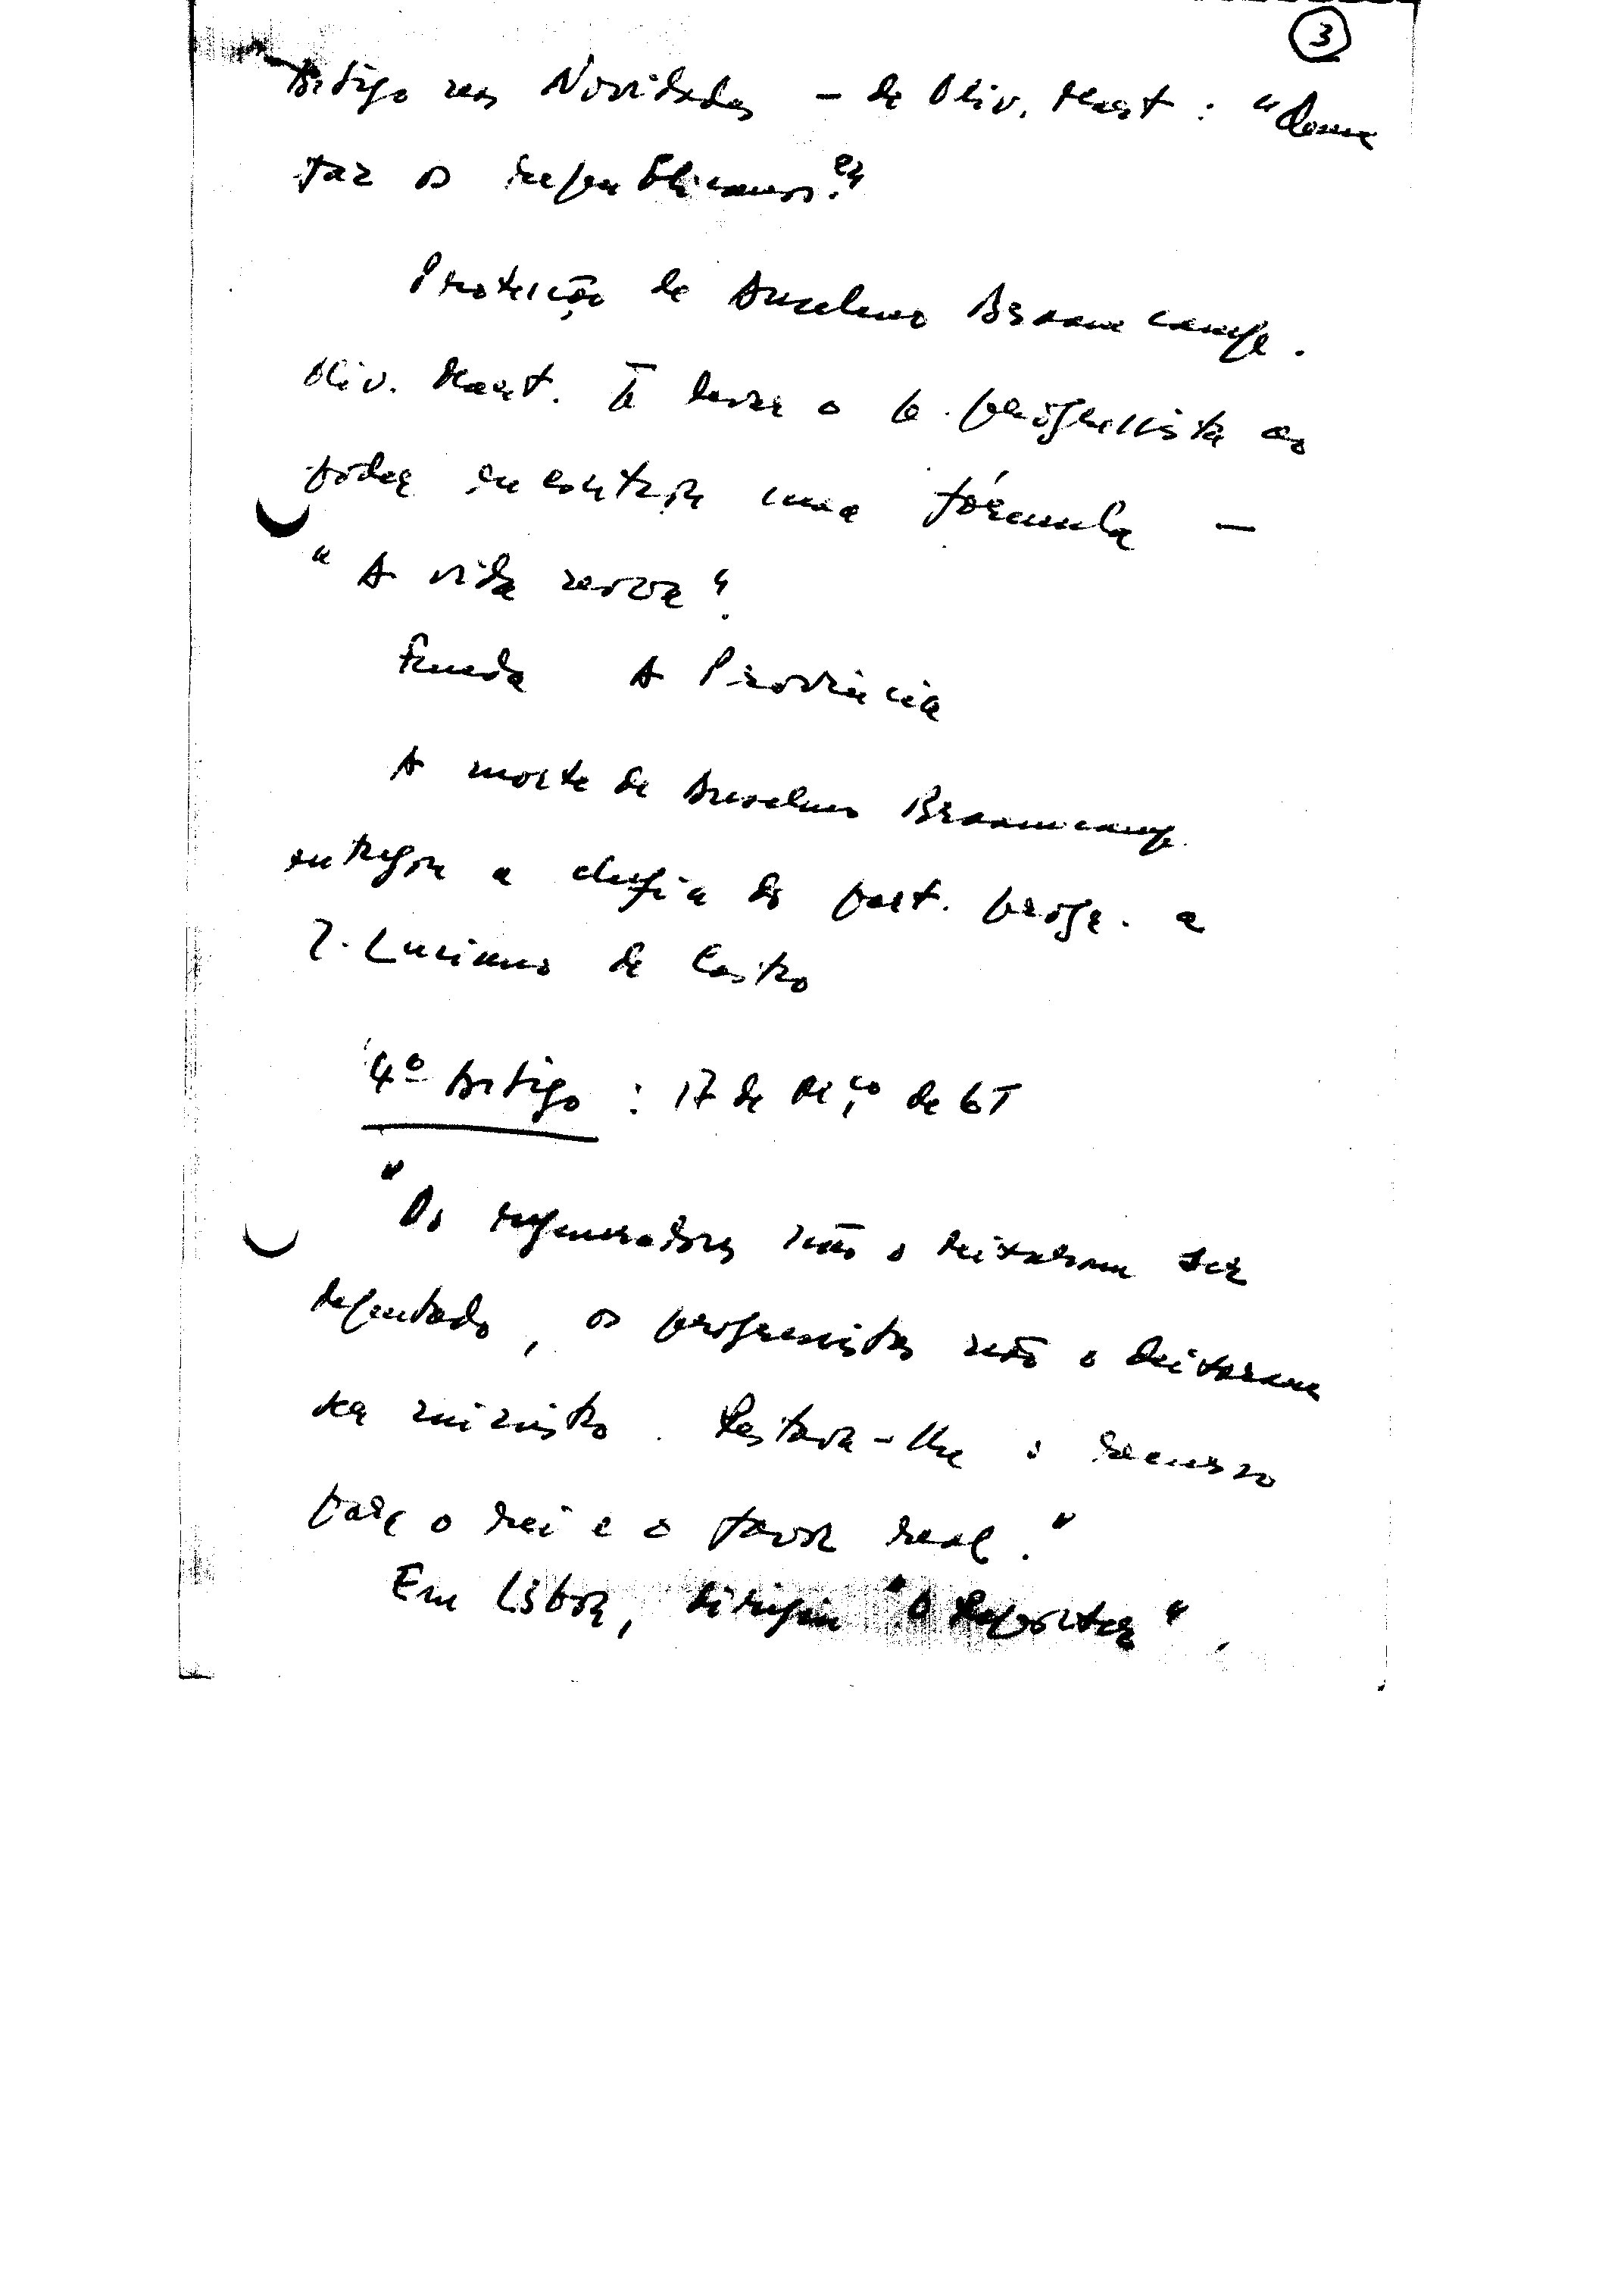 3
Artigo nas Novidades – de Oliv. Mart: "Como
faz os republicanos."
Protecção de Anselmo Braamcamp.
Oliv. Mart. p̄ levar o p. progressista ao
poder encontrou uma fórmula –
"A vida nova".
Funda A Província
A morte de Anselmo Braamcamp
entregou a chefia do part. progr. a
J. Luciano de Castro
4º Artigo : 17 de de 6T
"Os regeneradores não o deixaram ser
deputado, os progressistas não o deixaram
ser ministro. Restava-lhe o recurso
para o rei e o favor real."
Em Lisboa, dirigiu "O Repórter",